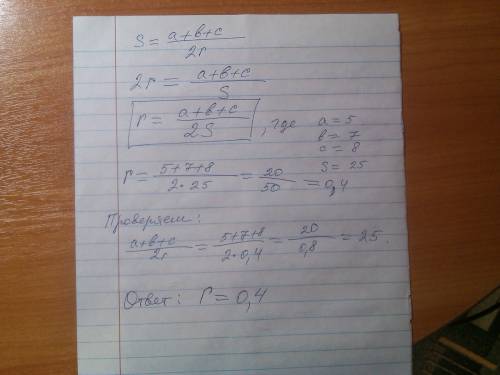 S = a+b+c / 2r
2r = a+b+c / S
r = a+b+c / 2S , где a = 5
b = 7
c = 8
S = 25
r = 5+7+8 / 2·25 = 20 / 50 = 0,4
Проверяем:
a+b+c / 2r = 5+7+8 / 2·0,4 = 20 / 0,8 = 25.
Ответ: r = 0,4